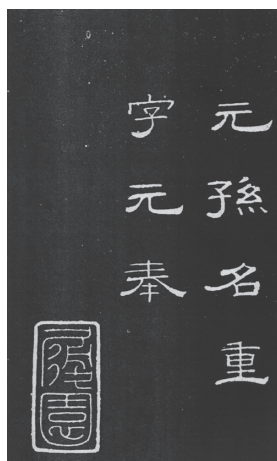 元孫名重
字元奉